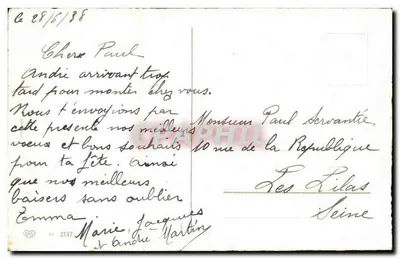 le 28/6/38
Cher Paul
André arrivant trop
tard pour monter chez vous.
Nous t'envoyions par
cette presente nos meilleurs
voeux et bons souhaits
pour ta fête. ainsi
que nos meilleurs
baisers sans oublier
Emma.
Marie, Jacques
et André Martin
Monsieur Paul Servantie
10 rue de la Republique
Les Lilas
Seine
2147